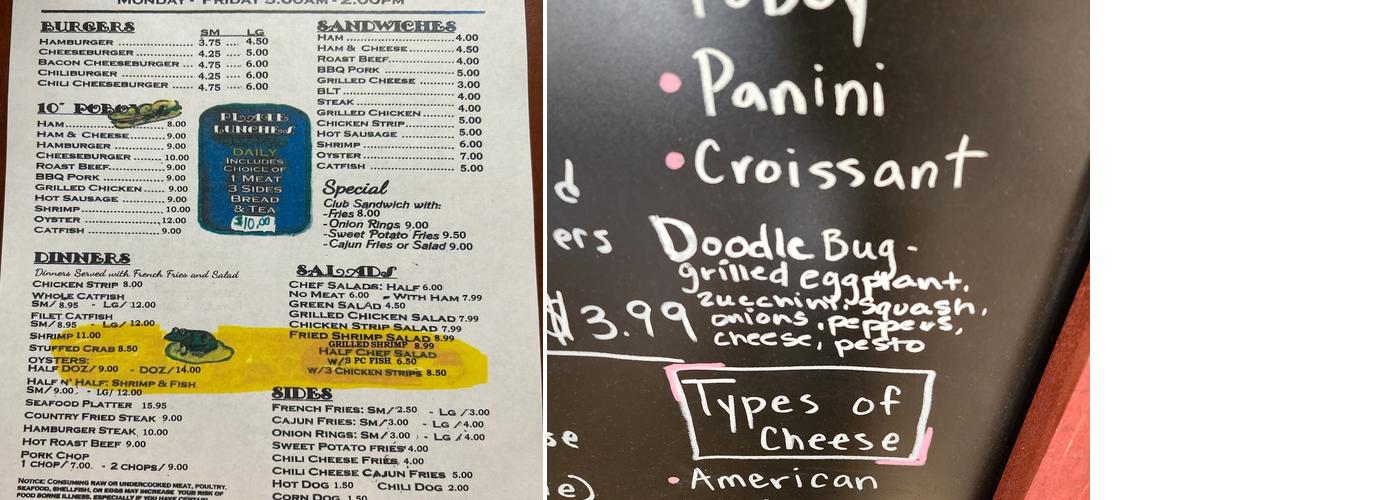 MONDAY - FRIDAY 5:00AM - 2:00PM
BURGERS
SM LG
HAMBURGER 3.75 .... 4.50
CHEESEBURGER 4.25 .... 5.00
BACON CHEESEBURGER ... 4.75 .... 6.00
CHILIBURGER 4.25 .... 6.00
CHILI CHEESEBURGER 4.75 .... 6.00
10" POBOYS
HAM 8.00
HAM & CHEESE 9.00
HAMBURGER 9.00
CHEESEBURGER 10.00
ROAST BEEF 9.00
BBQ PORK 9.00
GRILLED CHICKEN 9.00
HOT SAUSAGE 9.00
SHRIMP 10.00
OYSTER 12.00
CATFISH 9.00
PLATE
LUNCHES
DAILY
INCLUDES
CHOICE OF
1 MEAT
3 SIDES
BREAD
& TEA
$10.00
SANDWICHES
HAM 4.00
HAM & CHEESE 4.50
ROAST BEEF 4.00
BBQ PORK 5.00
GRILLED CHEESE 3.00
BLT 4.00
STEAK 4.00
GRILLED CHICKEN 5.00
CHICKEN STRIP 5.00
HOT SAUSAGE 5.00
SHRIMP 6.00
OYSTER 7.00
CATFISH 5.00
Special
Club Sandwich with:
-Fries 8.00
-Onion Rings 9.00
-Sweet Potato Fries 9.50
-Cajun Fries or Salad 9.00
DINNERS
Dinners Served with French Fries and Salad
CHICKEN STRIP 8.00
WHOLE CATFISH
SM/ 8.95 - LG/ 12.00
FILET CATFISH
SM/ 8.95 - LG/ 12.00
SHRIMP 11.00
STUFFED CRAB 8.50
OYSTERS:
HALF DOZ/ 9.00 - DOZ/14.00
HALF N' HALF: SHRIMP & FISH
SM/ 9.00 - LG/ 12.00
SEAFOOD PLATTER 15.95
COUNTRY FRIED STEAK 9.00
HAMBURGER STEAK 10.00
HOT ROAST BEEF 9.00
PORK CHOP
1 CHOP/ 7.00. - 2 CHOPS/ 9.00
NOTICE: CONSUMING RAW OR UNDERCOOKED MEAT, POULTRY,
SEAFOOD, SHELLFISH, OR EGGS MAY INCREASE YOUR RISK OF
FOOD BORNE ILLNESS, ESPECIALLY IF YOU HAVE CERTAIN
SALADS
CHEF SALADS: HALF 6.00
NO MEAT 6.00 - WITH HAM 7.99
GREEN SALAD 4.50
GRILLED CHICKEN SALAD 7.99
CHICKEN STRIP SALAD 7.99
FRIED SHRIMP SALAD 8.99
GRILLED SHRIMP 8.99
HALF CHEF SALAD
W/3 PC FISH 6.50
W/3 CHICKEN STRIPS 8.50
SIDES
FRENCH FRIES: SM/ 2.50 - LG /3.00
CAJUN FRIES: SM/ 3.00 - LG / 4.00
ONION RINGS: SM/ 3.00 - LG / 4.00
SWEET POTATO FRIES 4.00
CHILI CHEESE FRIES 4.00
CHILI CHEESE CAJUN FRIES 5.00
HOT DOG 1.50 CHILI DOG 2.00
CORN DOG 1.50
Poboy
• Panini
• Croissant
d
ers
$3.99
Doodle Bug-
grilled eggplant,
zucchini, squash,
onions, peppers,
cheese, pesto
Types of
Cheese
• American
se
e)